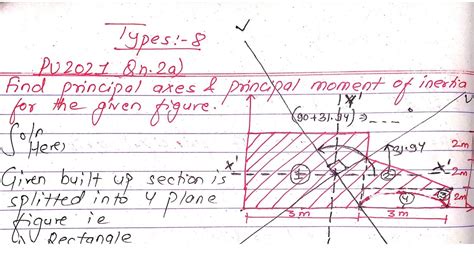 Types:-8
PU2021 Qn.2a)
Find principal axes & principal moment of inertia
for the given figure.
(90+31.94)=
Soln
Here,
31.94
Given built up section is
splitted into 4 plane
figure i.e
Rectangle
X'
X'
X'
1
2
4
2m
2m
2m
3m
3m